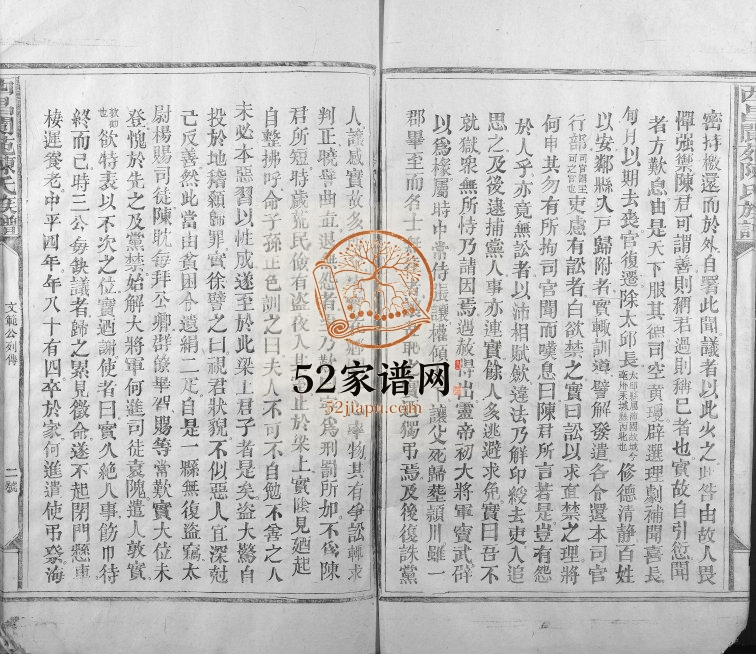 密持檄還而於外自署此聞議者以此火之此咎由故人畏
憚强禦陳君可謂善則稱君過則稱己者也實故自引愆聞
者方歎息由是天下服其德司空黄瓊辟選理劇補聞喜長
旬月以期丧官復遷除太邱長太邱縣屬沛國故城今亳州永城縣西北也修德清静百姓
以安鄰縣人戸歸附者實輙訓導譬解發遣各令還本司官
行部司官謂主司之官也吏慮有訟者白欲禁之實曰訟以求直禁之理將
何申其勿有所拘司官聞而嘆息曰陳君所言若是豈有怨
於人乎亦竟無訟者以沛相賦歛違法乃解印綬去吏人追
思之及後逮捕黨人事亦連實餘人多逃避求免實曰吾不
就獄衆無所恃乃請囚焉遇赦得出靈帝初大將軍竇武辟
以為掾屬時中常侍張讓權傾 讓父死歸塟頴川雖一
郡畢至而名士無 恥 獨弔焉及後復誅黨
人讓感實故多 率物其有争訟輒求
判正曉譬曲直退無怨者 為刑罰所加不爲陳
君所短時歲荒民儉有盗夜入其 止於梁上實陰見廼起
自整拂呼命子孫正色訓之曰夫人不可不自勉不善之人
未必本惡習以性成遂至於此梁上君子者是矣盗大驚自
投於地稽顙歸罪實徐譬之曰視君狀貌不似惡人宜深尅
己反善然此當由貧困令遺絹二疋自是一縣無復盗竊太
尉楊賜司徒陳耽每拜公卿群僚畢賀賜等常歎實大位未
登愧於先之及黨禁始解大將軍何進司徒袁隗遣人敦實
敦勸也欲特表以不次之位實廼謝使者曰實久絶人事飭巾待
終而已時三公每缺議者歸之累見徵命遂不起閉門懸車
棲遲養老中平四年年八十有四卒於家何進遣使弔祭海
文範公列傳
二號
52家谱网
52jiapu.com